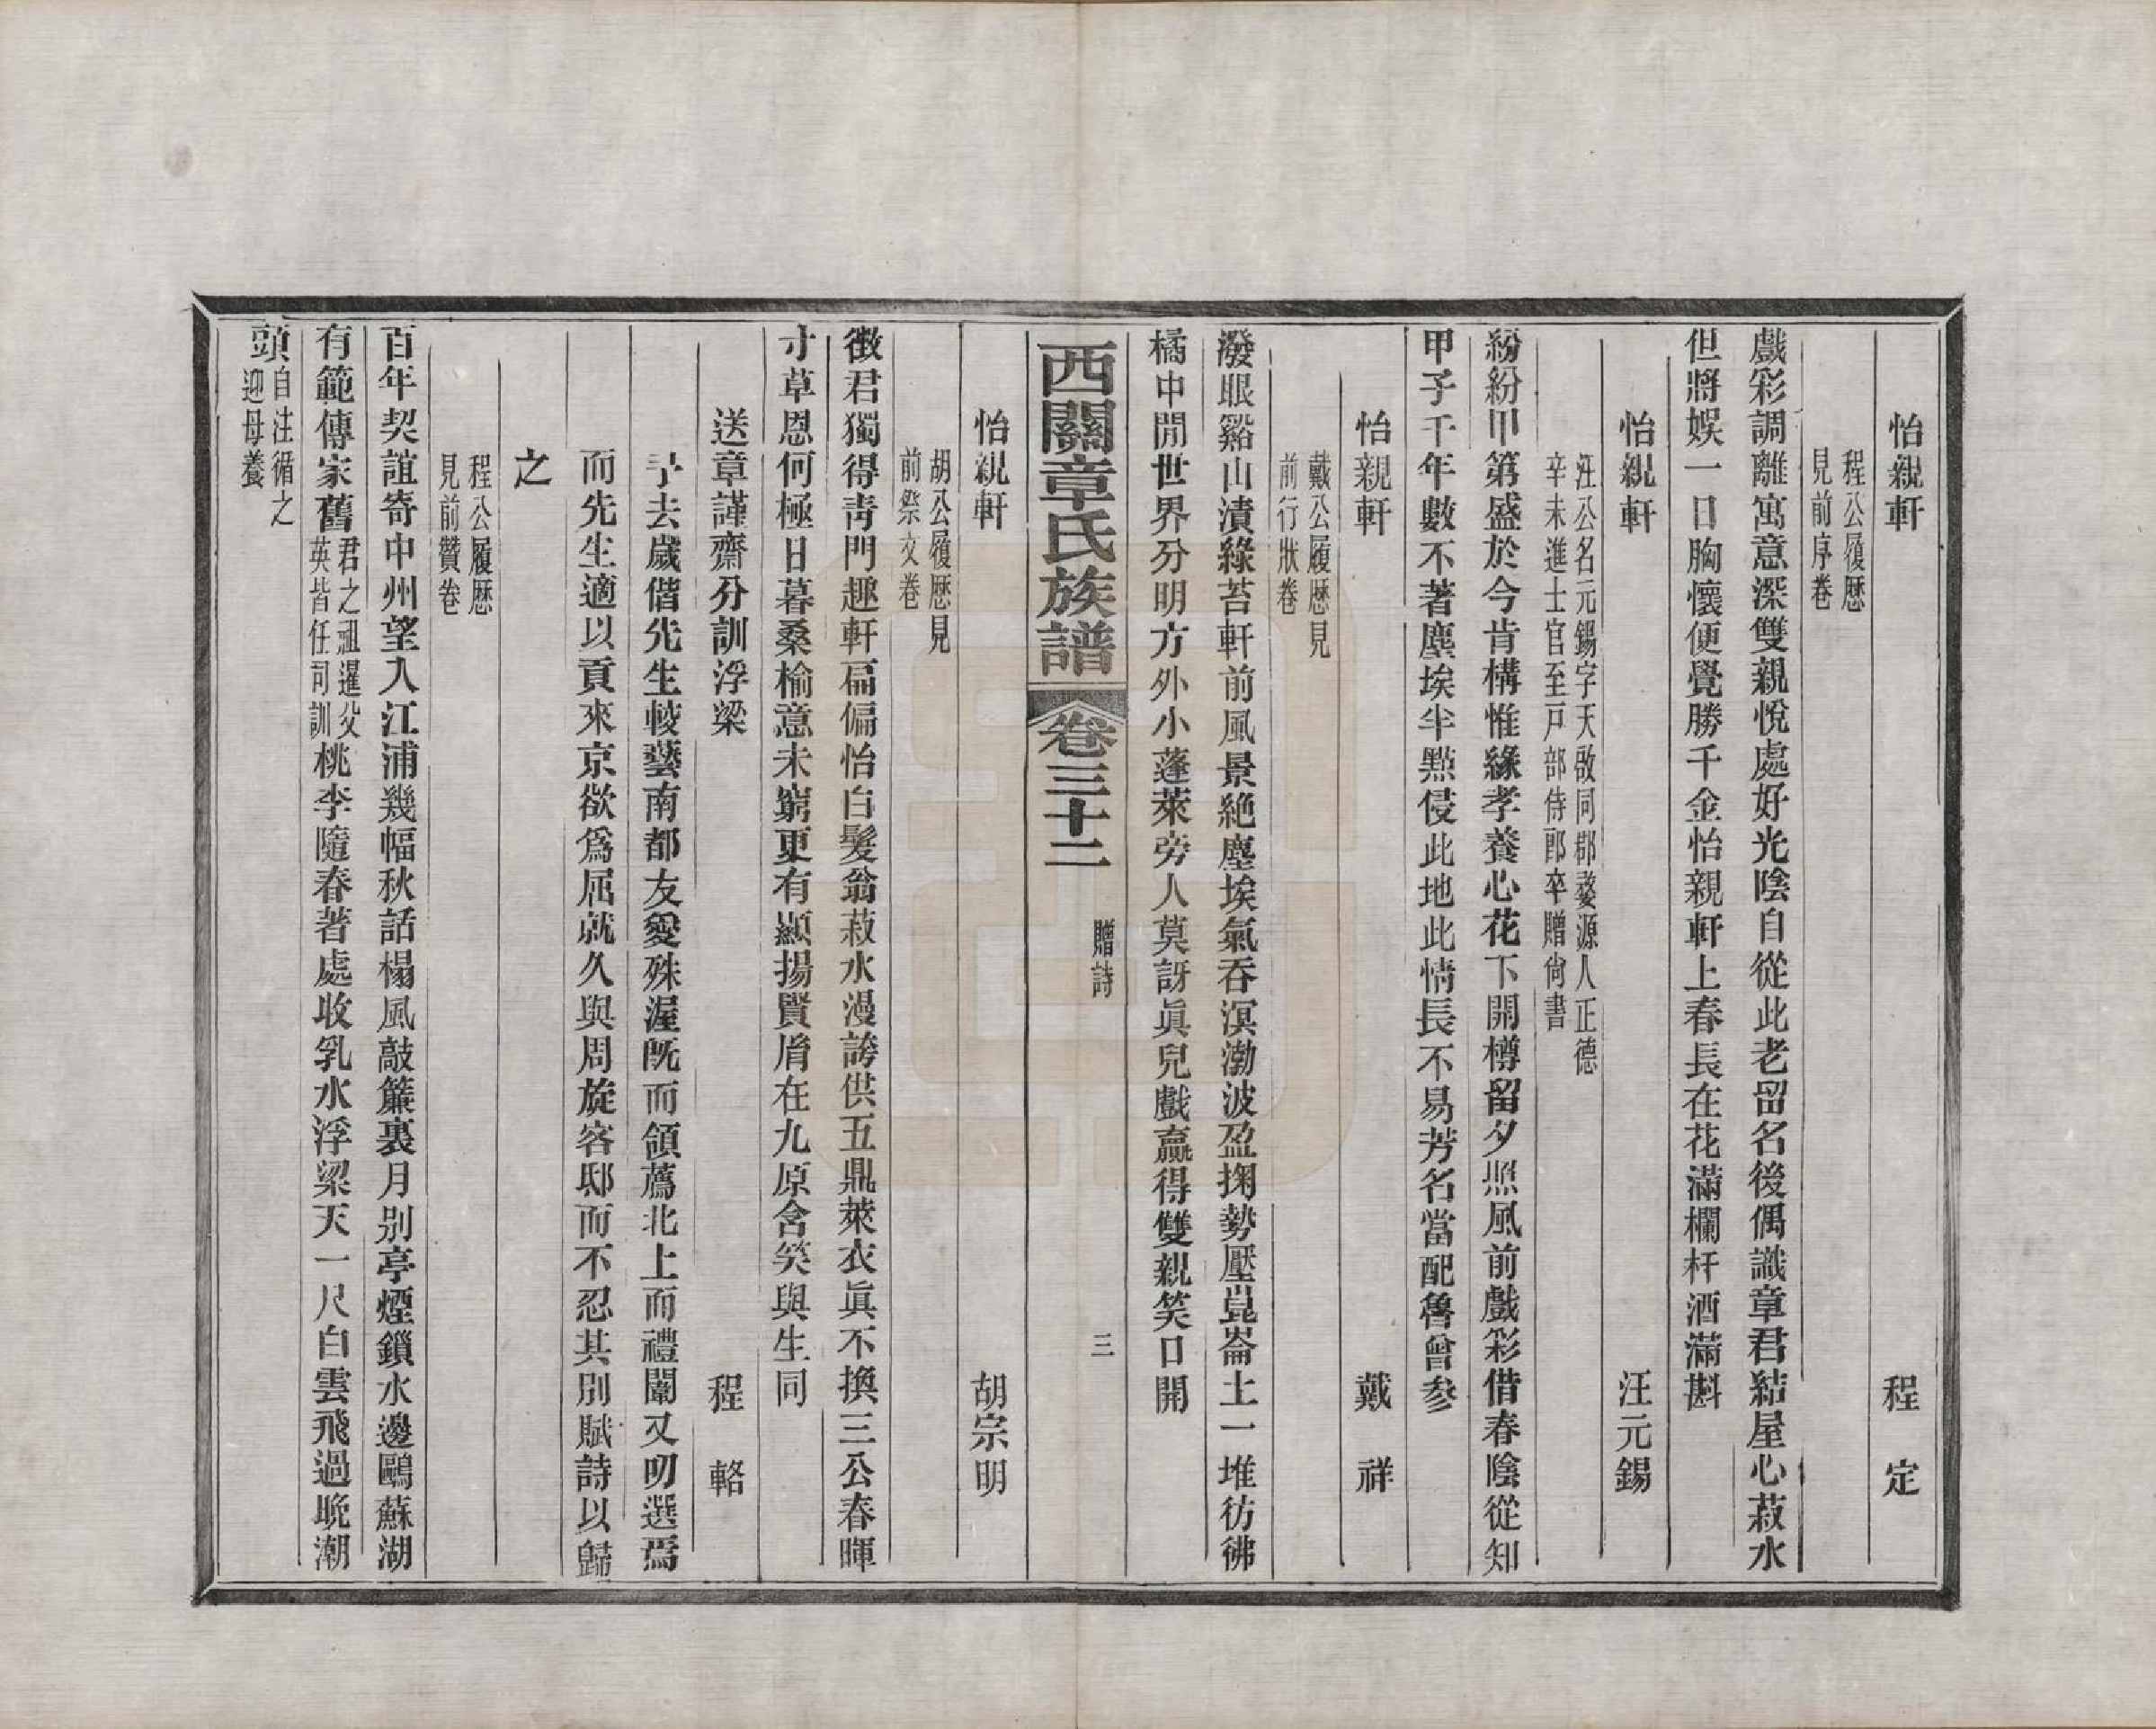 怡親軒　程　定
程公履歷
見前序卷
戲彩調離寓意深雙親悅處好光陰自從此老留名後偶識章君結屋心菽水
但將娛一日胸懷便覺勝千金怡親軒上春長在花滿欄杆酒滿斟
怡親軒　汪元錫
汪公名元錫字天啟同郡婺源人正德
辛未進士官至戸部侍郎卒贈尙書
紛紛甲第盛於今肯構惟緣孝養心花下開樽留夕照風前戲彩借春陰從知
甲子千年數不著塵埃半點侵此地此情長不易芳名當配魯曾參
怡親軒　戴　祥
戴公履歷見
前行狀卷
潑眼谿山漬綠苔軒前風景絶塵埃氣吞溟渤波盈掬勢壓崑崙土一堆彷彿
橘中閒世界分明方外小蓬萊旁人莫訝眞兒戲贏得雙親笑口開
西關章氏族譜　卷三十二　贈詩　三
怡親軒　胡宗明
胡公履歷見
前祭文卷
徵君獨得靑門趣軒扁偏怡白髮翁菽水漫誇供五鼎萊衣眞不換三公春暉
寸草恩何極日暮桑榆意未窮更有顯揚賢胤在九原含笑與生同
送章謹齋分訓浮梁　程　輅
予去歲偕先生較藝南都友愛殊渥旣而領薦北上而禮闈又叨選焉
而先生適以貢來京欲爲屈就久與周旋客邸而不忍其別賦詩以歸
之
程公履歷
見前贊卷
百年契誼寄中州望入江浦幾幅秋話榻風敲簾裏月別亭煙鎖水邊鷗蘇湖
有範傳家舊君之祖暹父
英皆任司訓桃李隨春著處收乳水浮梁天一尺白雲飛過晚潮
頭自注循之
迎母養